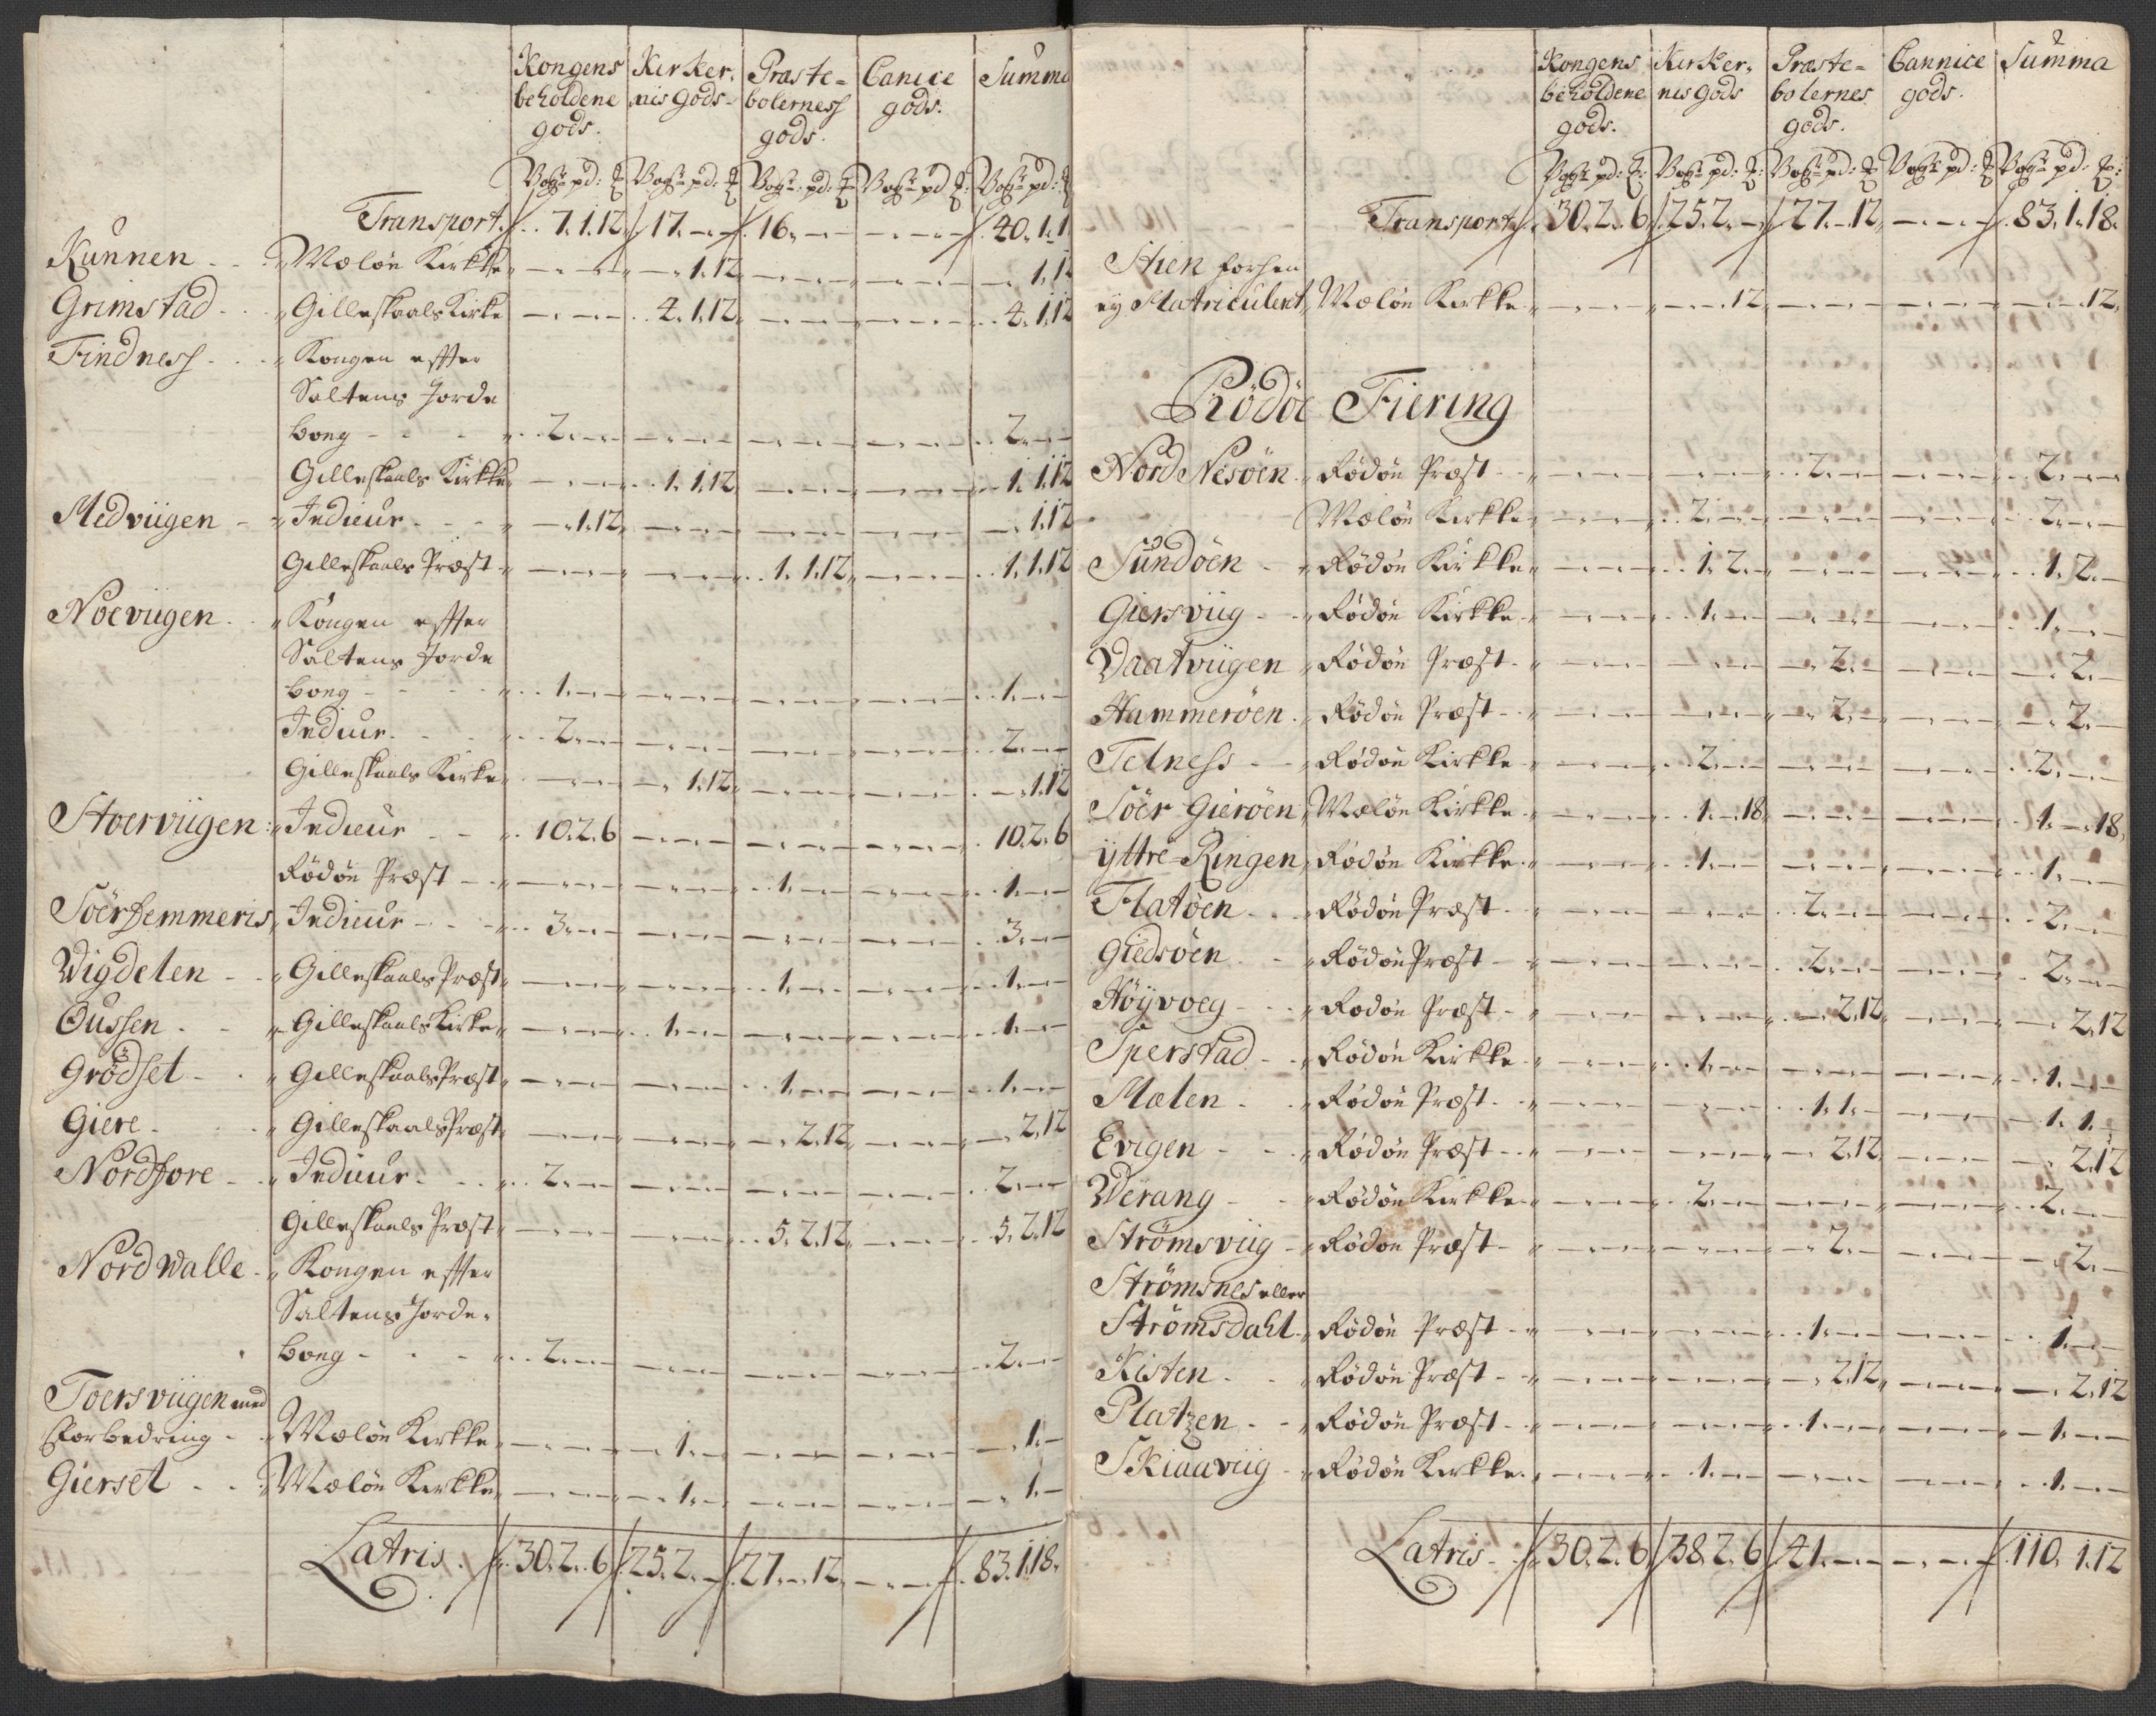 Kongens Kirker, Præste= Canice Summa
beholdene nis gods bolerness gods.
gods. gods.
Vog: pd: Vog: pd: Vog: pd: Vog: pd Vog: pd:
Transport. 7. 1. 12. 17. - - 16. - - - - - 40. 1. 1
Kunnen - - Mæløe Kirkke - - - - 1. 12. - - - - - - 1. 12
Grimstad - - Gilleskaals Kirke - - - 4. 1. 12. - - - - - - 4. 1. 12
Findness - - Kongen effter
Saltens Jorde
bong - - - 2. - - - - - - - - - - - 2. - -
Gilleskaals Kirkke - - - 1. 1. 12. - - - - - - 1. 1. 12
Medviigen - Jndieur - - - - 1. 12. - - - - - - - - - - 1. 12
Gilleskaals Præst - - - - - - - 1. 1. 12. - - - 1. 1. 12
Noeviigen - - Kongen effter
Saltens Jorde
bong - - - 1. - - - - - - - - - - - 1. - -
Jndieur - - 2. - - - - - - - - - - - 2. - -
Gilleskaals Kirke - - - - 1. 12. - - - - - - - 1. 12
Stoerviigen: Jndieur - - 10. 2. 6 - - - - - - - - - 10. 2. 6
Rødøe Præst - - - - - - - - 1. - - - - - 1. - -
Soërfemmeris, Jndieur - - 3. - - - - - - - - - - - 3. - -
Vigdelen - - Gilleskaals Præst - - - - - - 1. - - - - - 1. - -
Oussen - - Gilleskaals Kirke - - - 1. - - - - - - - - 1. - -
Grødset - - Gilleskaals Præst - - - - - - 1. - - - - - 1. - -
Giere - - Gilleskaals Præst - - - - - - - 2. 12. - - - - 2. 12
Nordfore - - Jndieur - - 2. - - - - - - - - - - - 2. - -
Gilleskaals Præst - - - - - - 5. 2. 12. - - - 5. 2. 12
Nordwalle - - Kongen effter
Saltens Jorde-
bong - - - 2. - - - - - - - - - - - 2. - -
Toersviigen med
Forbedring - - Mæløe Kirkke - - - - 1. - - - - - - - - 1. -
Gierset - - Mæløe Kirkke - - - - 1. - - - - - - - - 1. -
Latris. 30. 2. 6 25. 2. - 27. - 12. - - - 83. 1. 18.
Kongens Kirker, Præste= Cannice Summa
beholdene nes gods bolernes gods.
gods. gods.
Vog: pd: Vog: pd: Vog: pd: Vog: pd: Vog: pd:
Transport. 30. 2. 6 25. 2. - 27. - 12. - - - 83. 1. 18.
Stien forhen
ey Matriculert, Mæløe Kirkke - - - - - 12. - - - - - - - - 12.
Rödöe Fiering
Nord Nesöen - Rødøe Præst - - - - - - - 2. - - - - - 2. - -
Mæløe Kirkke - - - - 2. - - - - - - - - 2. - -
Sundöen - Rødøe Kirkke - - - - 1. 2. - - - - - - - 1. 2. -
Giersviig - - Rødøe Kirkke - - - - 1. - - - - - - - - 1. - -
Vaatviigen - Rødøe Præst - - - - - - - - 2. - - - - - 2. -
Hammeröen - Rødøe Præst - - - - - - - - 2. - - - - - 2. -
Telness - - Rødøe Kirkke - - - - 2. - - - - - - - - 2. - -
Soër Gieröen, Mæløe Kirkke - - - - 1. - 18. - - - - - - 1. - 18.
yttre-Ringen, Rødøe Kirkke - - - - 1. - - - - - - - - 1. - -
Flatöen - - Rødøe Præst - - - - - - - 2. - - - - - 2. - -
Giedsöen - - Rødøe Præst - - - - - - - 2. - - - - - 2. - -
Höyvoeg - - Rødøe Præst - - - - - - - - 2. 12. - - - - 2. 12
Sperstad - - Rødøe Kirkke - - - - 1. - - - - - - - - 1. - -
Mælen - - Rødøe Præst - - - - - - - 1. 1. - - - - 1. 1. -
Evigen - - Rødøe Præst - - - - - - - - 2. 12. - - - - 2. 12
Werang - - Rødøe Kirkke - - - - 2. - - - - - - - - 2. - -
Strömsviig - Rødøe Præst - - - - - - - - 2. - - - - - 2. -
Strömsnes eller
Strömsdahl - Rødøe Præst - - - - - - - 1. - - - - - 1. - -
Kisten - - Rødøe Præst - - - - - - - - 2. 12. - - - - 2. 12
Platzen - - Rødøe Præst - - - - - - - 1. - - - - - 1. - -
Skiaaviig - Rødøe Kirkke - - - - 1. - - - - - - - - 1. - -
Latris - 30. 2. 6 38. 2. 6 41. - - - - - 110. 1. 12